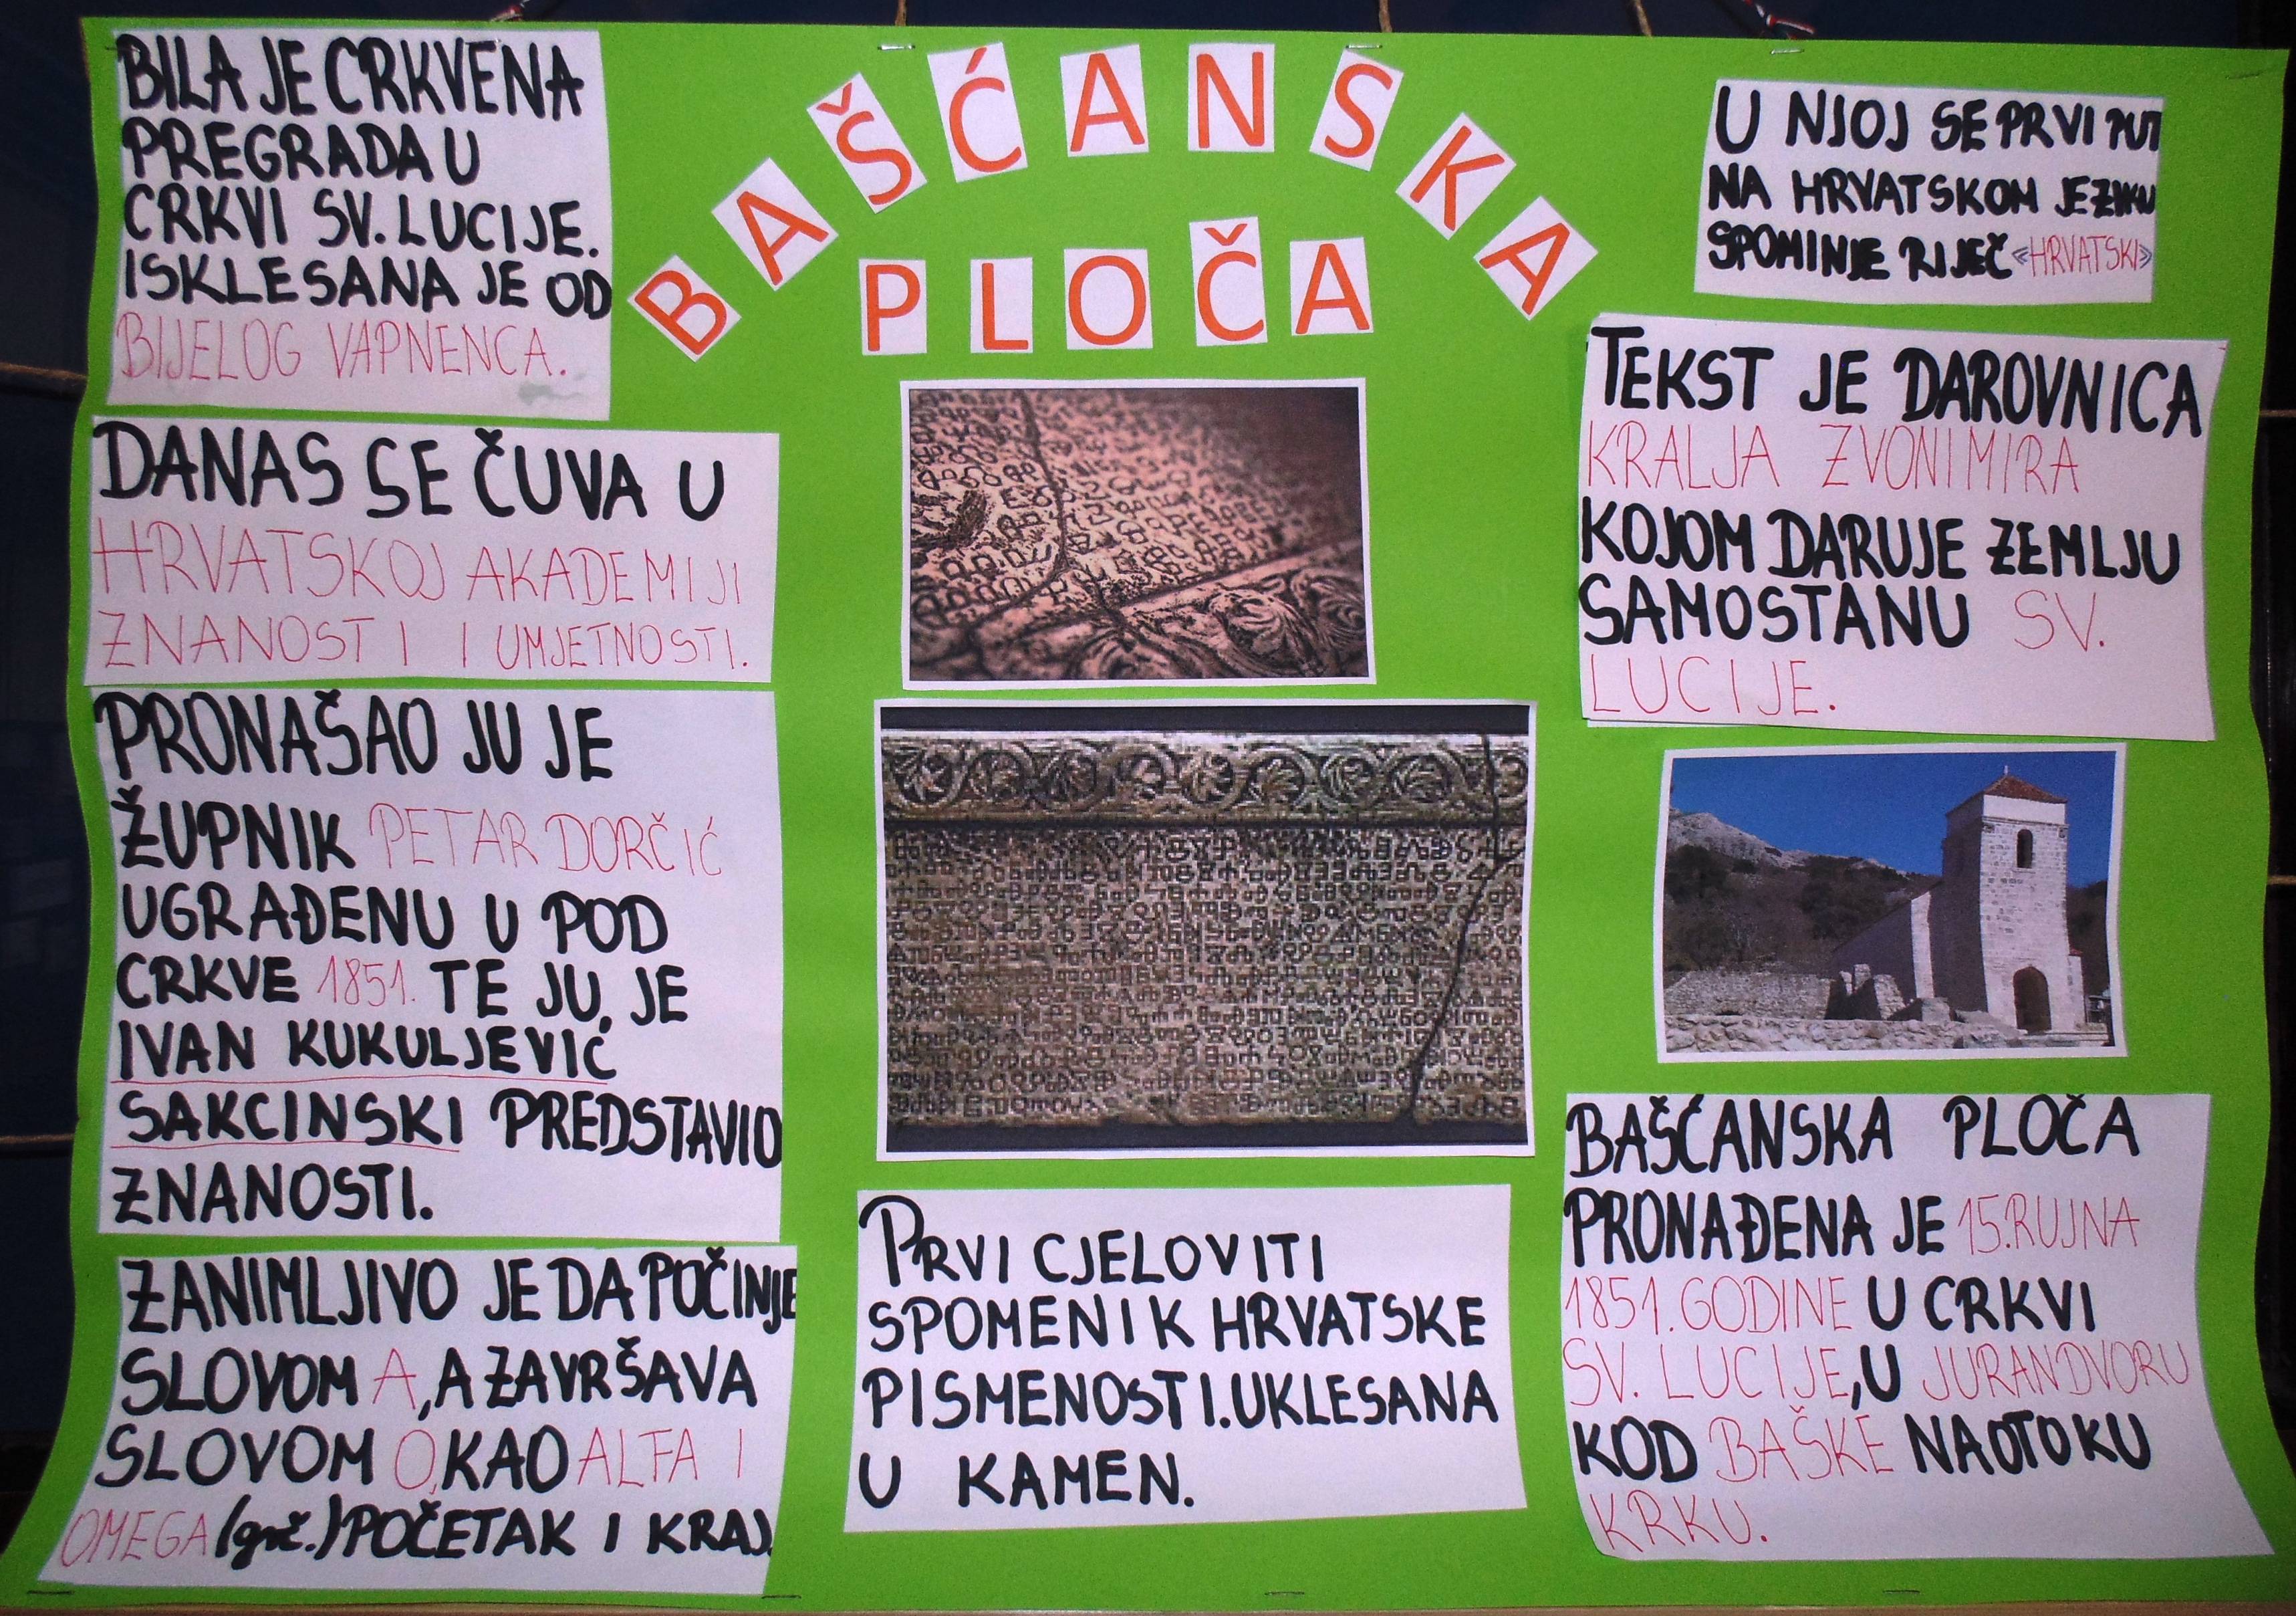 BAŠĆANSKA
PLOČA
BILA JE CRKVENA
PREGRADA U
CRKVI SV. LUCIJE.
ISKLESANA JE OD
BIJELOG VAPNENCA.
DANAS SE ČUVA U
HRVATSKOJ AKADEMIJI
ZNANOSTI I UMJETNOSTI.
PRONAŠAO JU JE
ŽUPNIK PETAR DORČIĆ
UGRAĐENU U POD
CRKVE 1851. TE JU, JE
IVAN KUKULJEVIĆ
SAKCINSKI PREDSTAVIO
ZNANOSTI.
ZANIMLJIVO JE DA POČINJE
SLOVOM A, A ZAVRŠAVA
SLOVOM O, KAO ALFA I
OMEGA (grč.) POČETAK I KRAJ.
PRVI CJELOVITI
SPOMENIK HRVATSKE
PISMENOSTI. UKLESANA
U KAMEN.
U NJOJ SE PRVI PUT
NA HRVATSKOM JEZIKU
SPOMINJE RIJEČ «HRVATSKI»
TEKST JE DAROVNICA
KRALJA ZVONIMIRA
KOJOM DARUJE ZEMLJU
SAMOSTANU SV.
LUCIJE.
BAŠĆANSKA PLOČA
PRONAĐENA JE 15. RUJNA
1851. GODINE U CRKVI
SV. LUCIJE, U JURANDVORU
KOD BAŠKE NA OTOKU
KRKU.